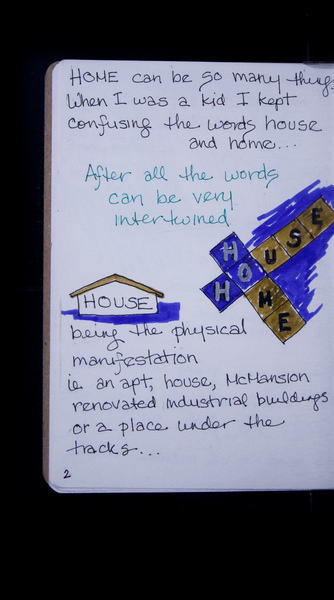 HOME can be so many things
When I was a kid I kept
confusing the words house
and home...
After all the words
can be very
intertwined
HOUSE
HOME
HOUSE
being the physical
manifestation
ie an apt, house, McMansion
renovated industrial buildings
or a place under the
tracks...
2